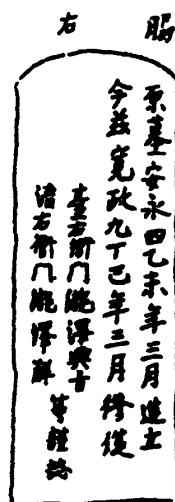 脇
右
原墓安永四乙未年三月造立
今茲寛政九丁巳年三月修復
右衛門瀧澤興
清右衛門瀧澤解
等謹誌